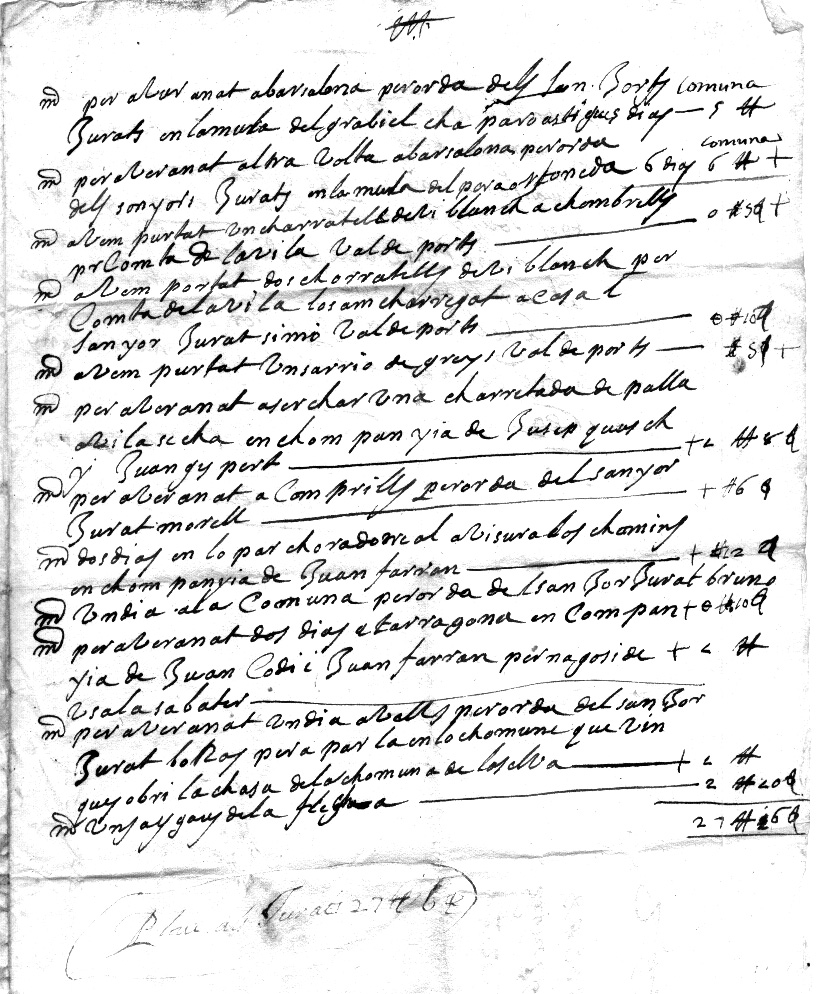 mᵒ per aver anat abarsalona perorda dels san Borts comuna
Jurats en lamula del grabiel cha paroastigues dias — 5 ₶
mᵒ per averanat altra volta abarsalona perorda comuna
dels sonyors Jurats en la mula del 6 dias 6 ₶ +
mᵒ avem purtat un charratell de vi blanch a chombrells
pr Comta de la vila val de ports — 0 ₶ 5 +
mᵒ avem portat dos chorratells de vi blanch per
Comta de la vila los am charregat a casa l
sanyor Jurat simo val de ports — 0 ₶ 10
mᵒ avem purtat un sarrio de greys val de ports — ₶ 5 +
mᵒ per averanat a serchar una charretada de palla
a vila secha en chom pan yia de Jusep guasch
y Juan gy pert — + 2 ₶ 8
mᵒ per averanat a Comprills perorda del sanyor
Jurat morell — + ₶ 6
mᵒ dos dias en lo par al avisura los chomins
en chom panyia de Juan farran — + ₶ 12
mᵒ un dia a la Comuna perorda del san Bor Jurat bruno + 0 ₶ 10
mᵒ per averanat dos dias a tarragona en Com pan
yia de Juan Codi i Juan farran per nagosi de + 2 ₶
usala sabater
mᵒ per averanat un dia a valls perorda del san Bor
Jurat pera par la en lo chomune que vin
gues obri la chasa de la chomuna de laselva — + 2 ₶
mᵒ de la — 2 ₶ 20
27 ₶ 6
Jurats 27 ₶ 6